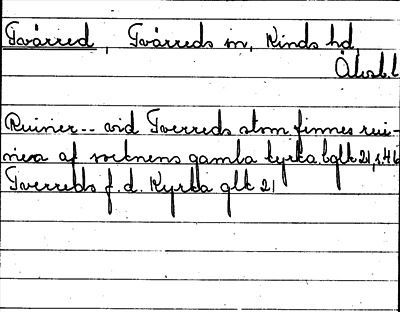 Tvärred, Tvärreds sn, Kinds hd,
Älvsb.l.
Ruiner -- vid Tverreds stom finnes rui-
nera af socknens gamla kyrka. bglk 21, s.46
Tverreds f.d. Kyrka glk 21